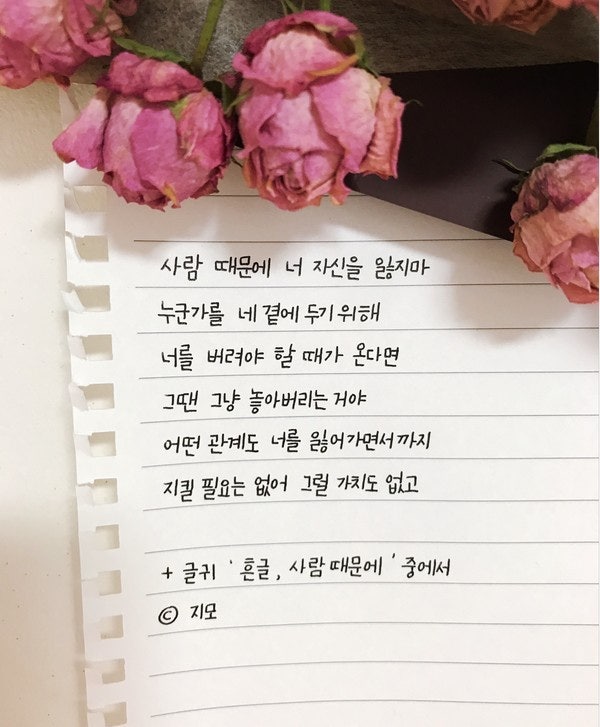 사람 때문에 너 자신을 잃지마
누군가를 네 곁에 두기 위해
너를 버려야 할 때가 온다면
그땐 그냥 놓아버리는거야
어떤 관계도 너를 잃어가면서까지
지킬 필요는 없어 그럴 가치도 없고
+ 글귀 ' 흔글, 사람 때문에 ' 중에서
© 지모